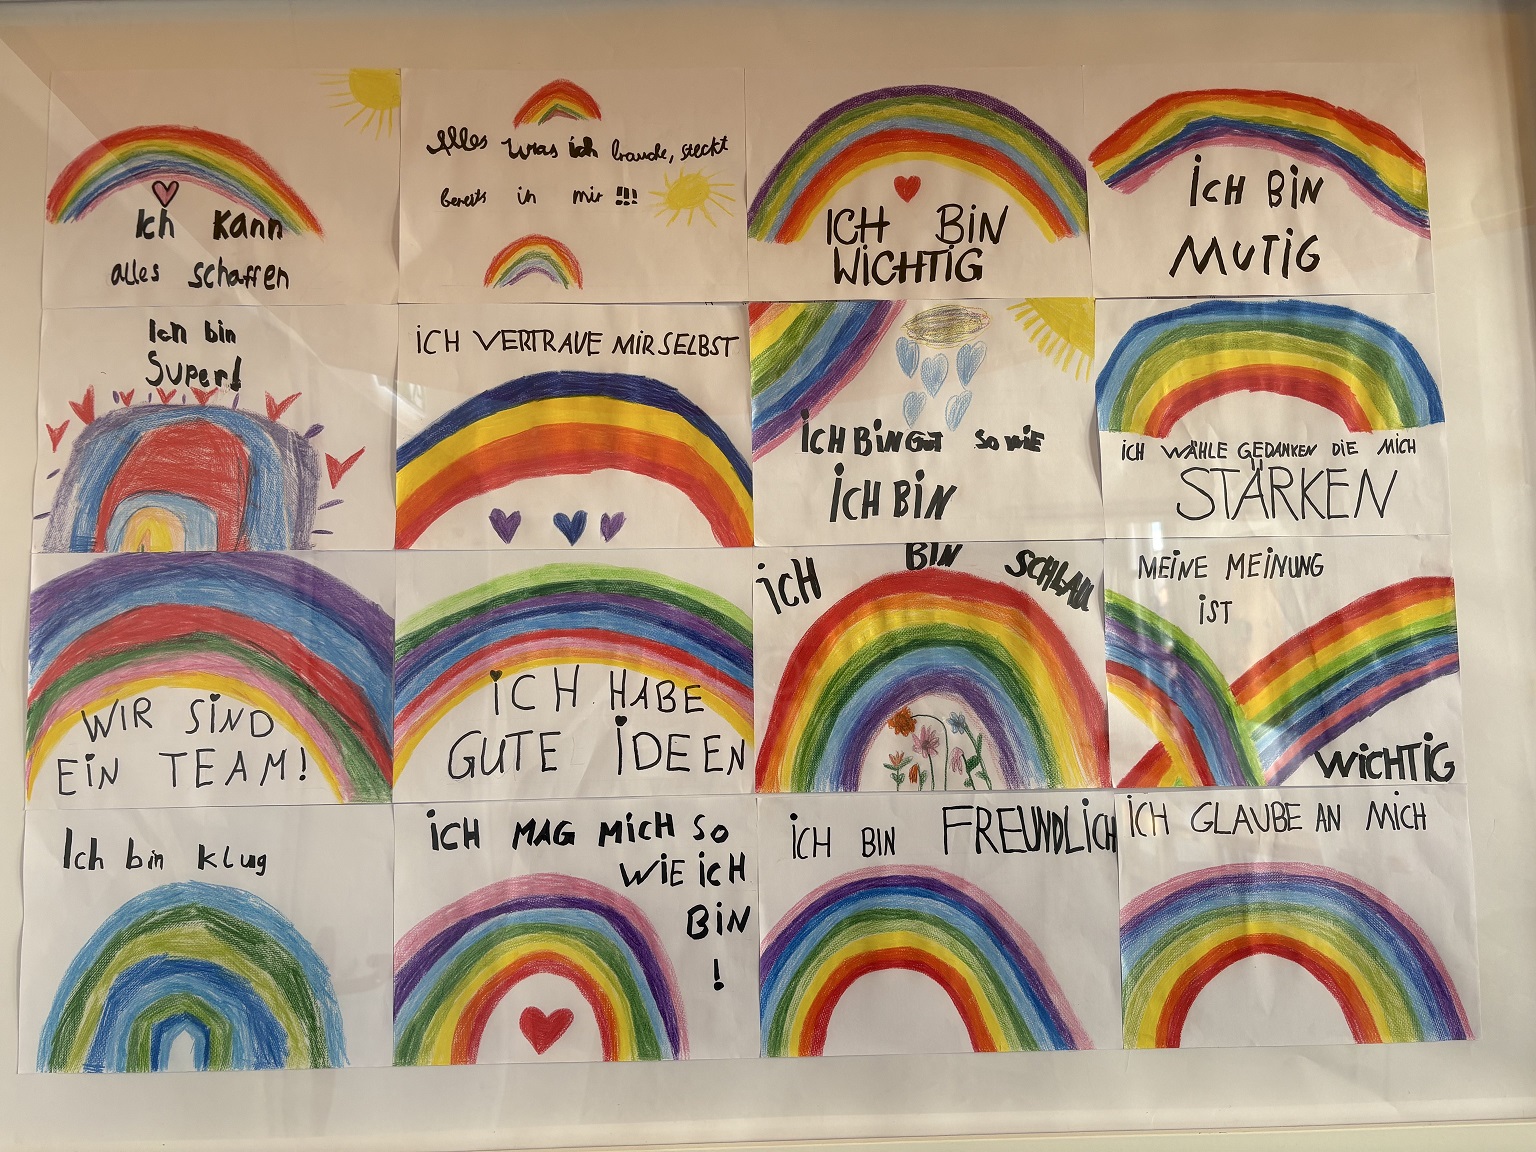 Ich Kann
alles schaffen
Alles was ich brauche, steckt
bereits in mir !!!
ICH BIN
WICHTIG
ICH BIN
MUTIG
Ich bin
Super!
ICH VERTRAUE MIR SELBST
ICH BIN GUT SO WIE
ICH BIN
ICH WÄHLE GEDANKEN DIE MICH
STÄRKEN
WIR SIND
EIN TEAM!
ICH HABE
GUTE IDEEN
ICH BIN SCHLAU
MEINE MEINUNG
IST
WICHTIG
Ich bin klug
ICH MAG MICH SO
WIE ICH
BIN
!
ICH BIN FREUNDLICH
ICH GLAUBE AN MICH